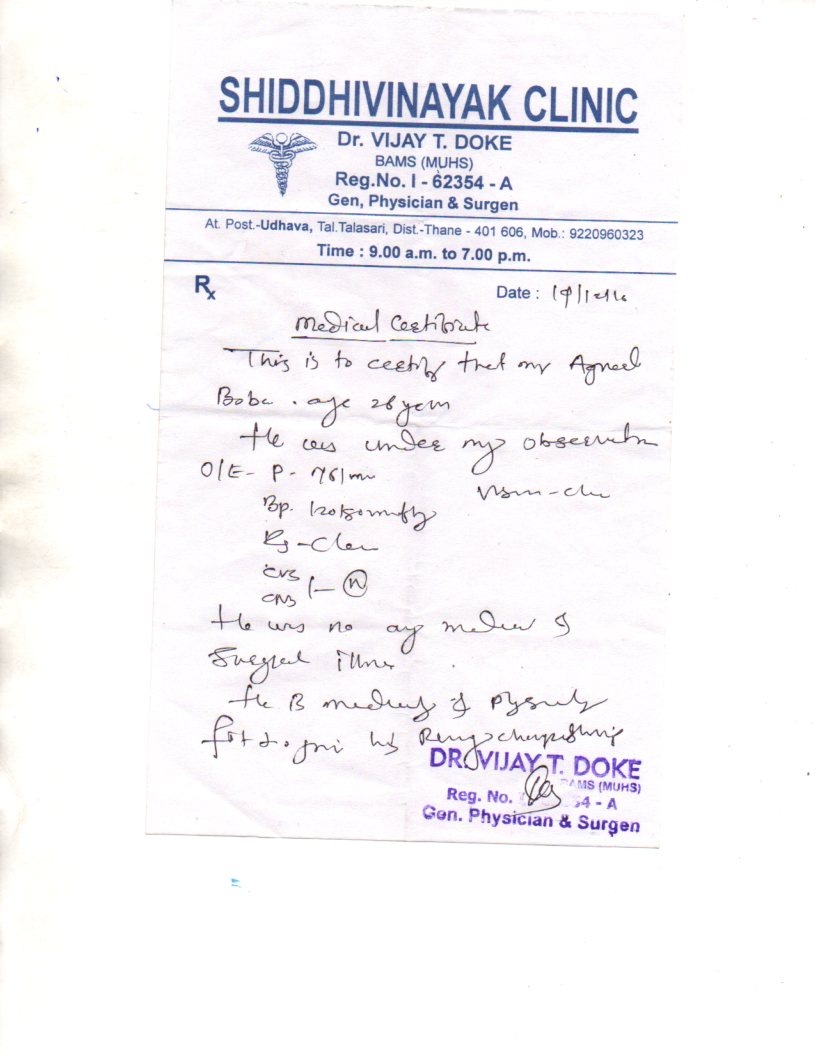 SHIDDHIVINAYAK CLINIC
Dr. VIJAY T. DOKE
BAMS (MUHS)
Reg.No. I - 62354 - A
Gen, Physician & Surgen
At. Post.-Udhava, Tal.Talasari, Dist.-Thane - 401 606, Mob.: 9220960323
Time : 9.00 a.m. to 7.00 p.m.
Rx
Date :
Medical Certificate
This is to certify that mr
age 26 year
He was under my observation
O/E - P - 76/min
Bp.
Rs - Clear
CVS
CNS - N
He was no any
Surgical illness
He is &
fit to join his
DR. VIJAY T. DOKE
BAMS (MUHS)
Reg. No. 54 - A
Gen. Physician & Surgen